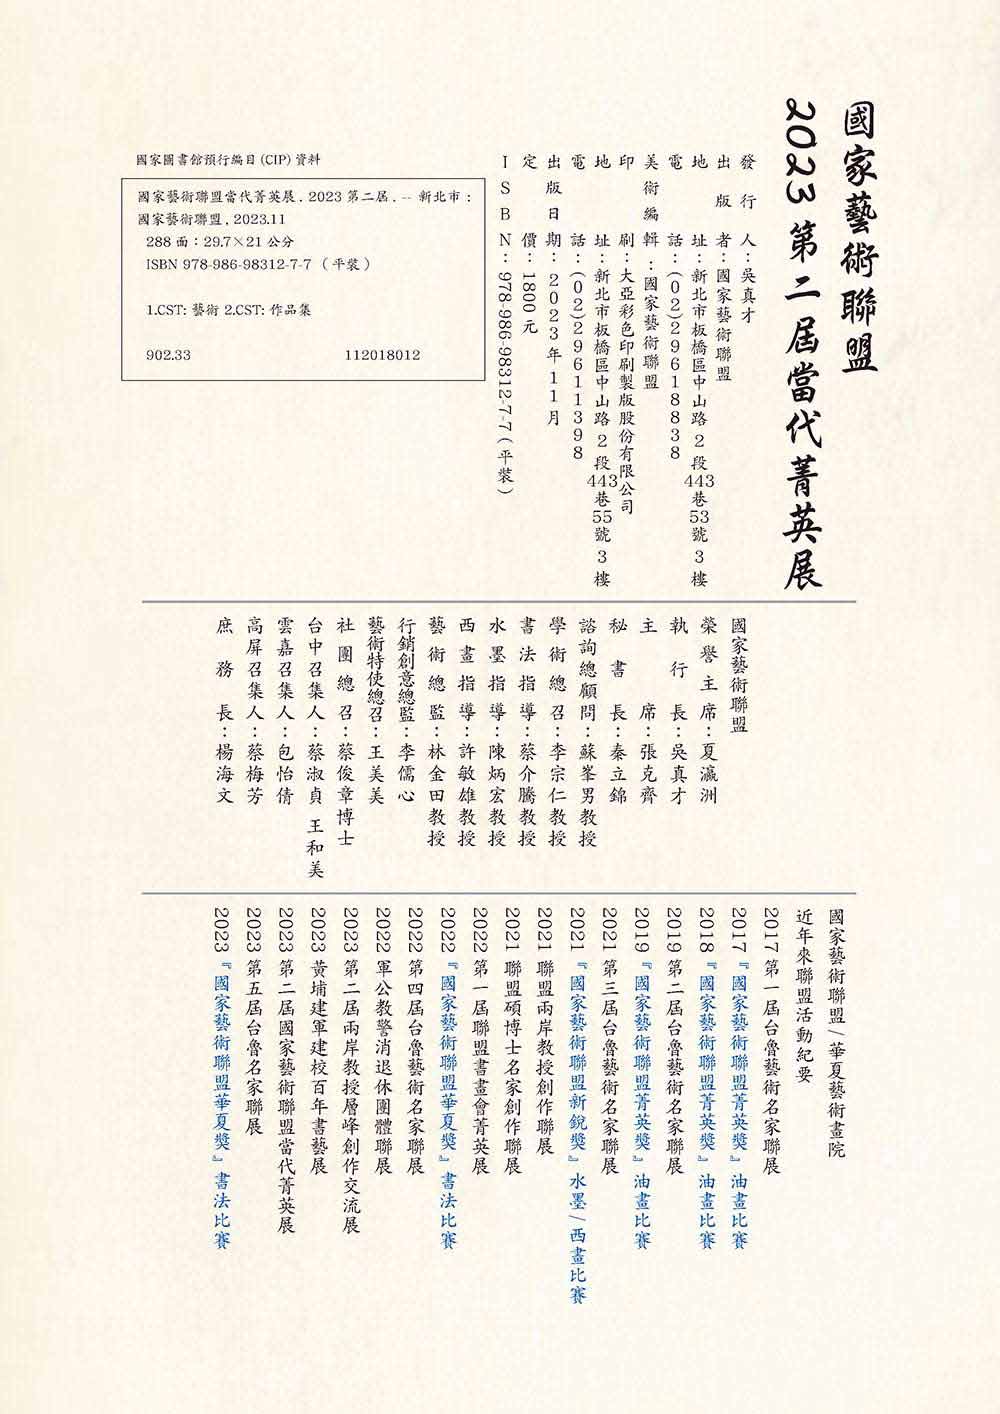 國家藝術聯盟
2023 第二屆當代菁英展
發行人：吳真才
出版者：國家藝術聯盟
地址：新北市板橋區中山路 2 段 443 巷 53 號 3 樓
電話：(02)29618838
美術編輯：國家藝術聯盟
印刷：大亞彩色印刷製版股份有限公司
地址：新北市板橋區中山路 2 段 443 巷 55 號 3 樓
電話：(02)29611398
出版日期：2023年11月
定價：1800 元
ISBN：978-986-98312-7-7 (平裝)
國家圖書館預行編目(CIP)資料
國家藝術聯盟當代菁英展. 2023 第二屆. -- 新北市：
國家藝術聯盟, 2023.11
288 面：29.7×21 公分
ISBN 978-986-98312-7-7 (平裝)
1.CST: 藝術 2.CST: 作品集
902.33 112018012
國家藝術聯盟
榮譽主席：夏瀛洲
執行長：吳真才
主席：張克齊
秘書長：秦立錦
諮詢總顧問：蘇峯男教授
學術總召：李宗仁教授
書法指導：蔡介騰教授
水墨指導：陳炳宏教授
西畫指導：許敏雄教授
藝術總監：林金田教授
行銷創意總監：李儒心
藝術特使總召：王美美
社團總召：蔡俊章博士
台中召集人：蔡淑貞 王和美
雲嘉召集人：包怡倩
高屏召集人：蔡梅芳
庶務長：楊海文
國家藝術聯盟/華夏藝術畫院
近年來聯盟活動紀要
2017 第一屆台魯藝術名家聯展
2017『國家藝術聯盟菁英獎』油畫比賽
2018『國家藝術聯盟菁英獎』油畫比賽
2019 第二屆台魯藝術名家聯展
2019『國家藝術聯盟菁英獎』油畫比賽
2021 第三屆台魯藝術名家聯展
2021『國家藝術聯盟新銳獎』水墨/西畫比賽
2021 聯盟兩岸教授創作聯展
2021 聯盟碩博士名家創作聯展
2022 第一屆聯盟書畫會菁英展
2022『國家藝術聯盟華夏獎』書法比賽
2022 第四屆台魯藝術名家聯展
2022 軍公教警消退休團體聯展
2023 第二屆兩岸教授層峰創作交流展
2023 黃埔建軍建校百年書藝展
2023 第二屆國家藝術聯盟當代菁英展
2023 第五屆台魯名家聯展
2023『國家藝術聯盟華夏獎』書法比賽